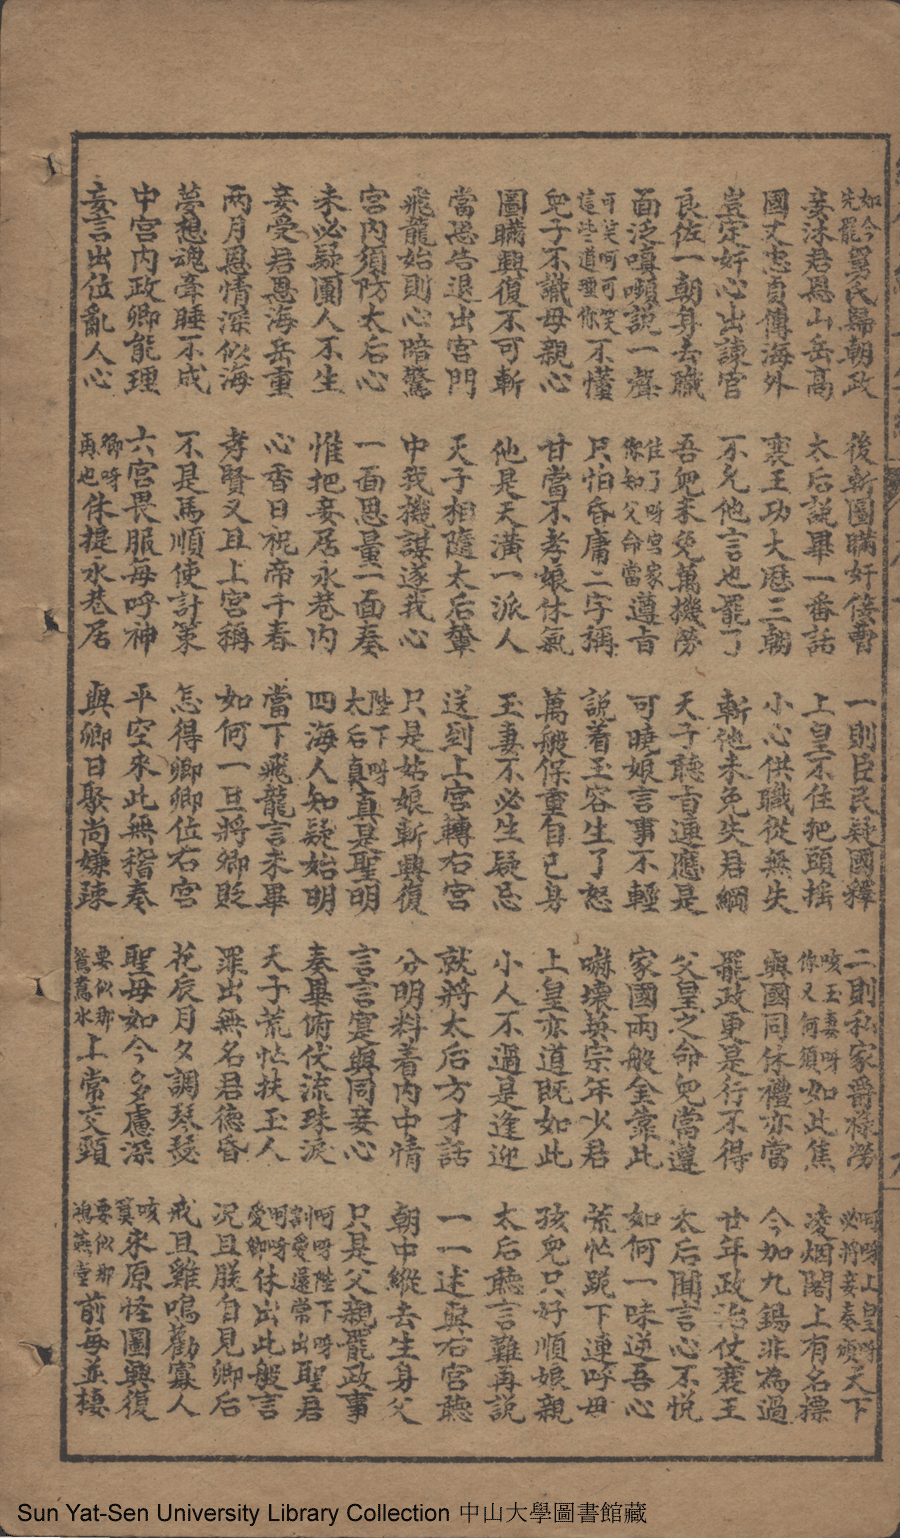 如今先罷舅氏歸朝政 後斬圖瞞奸倿曹 一則臣民疑國釋 二則私家爵祿勞 呵呀上皇呀必將妾奏頌天下
妾沐君恩山岳高 太后說畢一番話 上皇不住把頭搖 咳玉妻呀你又何須如此焦 凌烟閣上有名摽
國丈忠貞傳海外 襄王功大歷三朝 小心供職從無失 與國同休禮亦當 今加九錫非為過
豈定奸心出諫官 不允他言也罷了 斬他未免失君綱 罷政更是行不得 廿年政治仗襄王
良佐一朝身去職 吾兒未免萬機勞 天子聽言連應是 父皇之命兒當遵 太后聞言心不悅
面泛嗔嚬說一聲 住了呀宮家你知父命當遵旨 可曉娘言事不輕 家國兩般全靠此 如何一味逆吾心
可笑呵可笑這些道理你不懂 只怕昏庸二字稱 說着玉容生了怒 嚇壞英宗年少君 荒忙跪下連呼母
兒子不識母親心 甘當不孝娘休氣 萬般保重自己身 上皇亦道既如此 孩兒只好順娘親
圖瞞興復不可斬 他是天潢一派人 玉妻不必生疑忌 小人不過是逢迎 太后聽言難再說
當思告退出宮門 天子相隨太后輦 送到上宮轉右宮 就將太后方才話 一一述與右宮聽
飛龍始則心暗驚 中我機謀遂我心 只是姑娘斬興復 分明料着內中情 朝中縱去生身父
宮內須防太后心 一面思量一面奏 陛下呀太后真真是聖明 言言寔與同妾心 只是父親罷政事
未必疑團人不生 惟把妾居永巷內 四海人知疑始明 奏畢俯伏流珠淚 呵呀陛下呀割愛還常出聖君
妾受君恩海岳重 心香日祝帝千春 當下飛龍言未畢 天子荒忙扶玉人 呵呀愛卿休出此般言
兩月恩情深似海 孝賢又且上宮稱 如何一旦將卿貶 罪出無名君德昏 況且朕自見卿后
夢想魂牽睡不成 不是馬順使計策 怎得卿卿位右宮 花辰月夕調琴瑟 戒旦雞鳴勸寡人
中宮內政卿能理 六宮畏服每呼神 平空來此無稽奏 聖母如今多慮深 咳算來原怪圖興復
妄言出位亂人心 卿呀再也休提永巷居 與卿日聚尚嫌疎 要似那鴛鴦水上常交頸 要似那鴻燕堂前每並棲
Sun Yat-Sen University Library Collection 中山大學圖書館藏